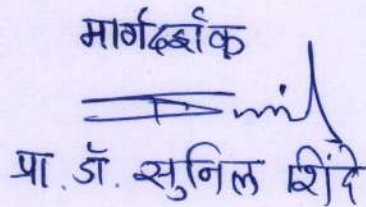 मार्गदर्शक
प्रा. डॉ. सुनिल शिंदे